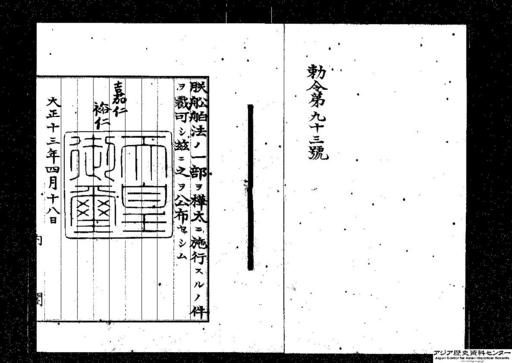 勅令第九十三號
朕船舶法ノ一部ヲ樺太ニ施行スルノ件
ヲ裁可シ玆ニ之ヲ公布セシム
嘉仁
裕仁
天皇御璽
大正十三年四月十八日
内閣
アジア歴史資料センター
Japan Center for Asian Historical Records